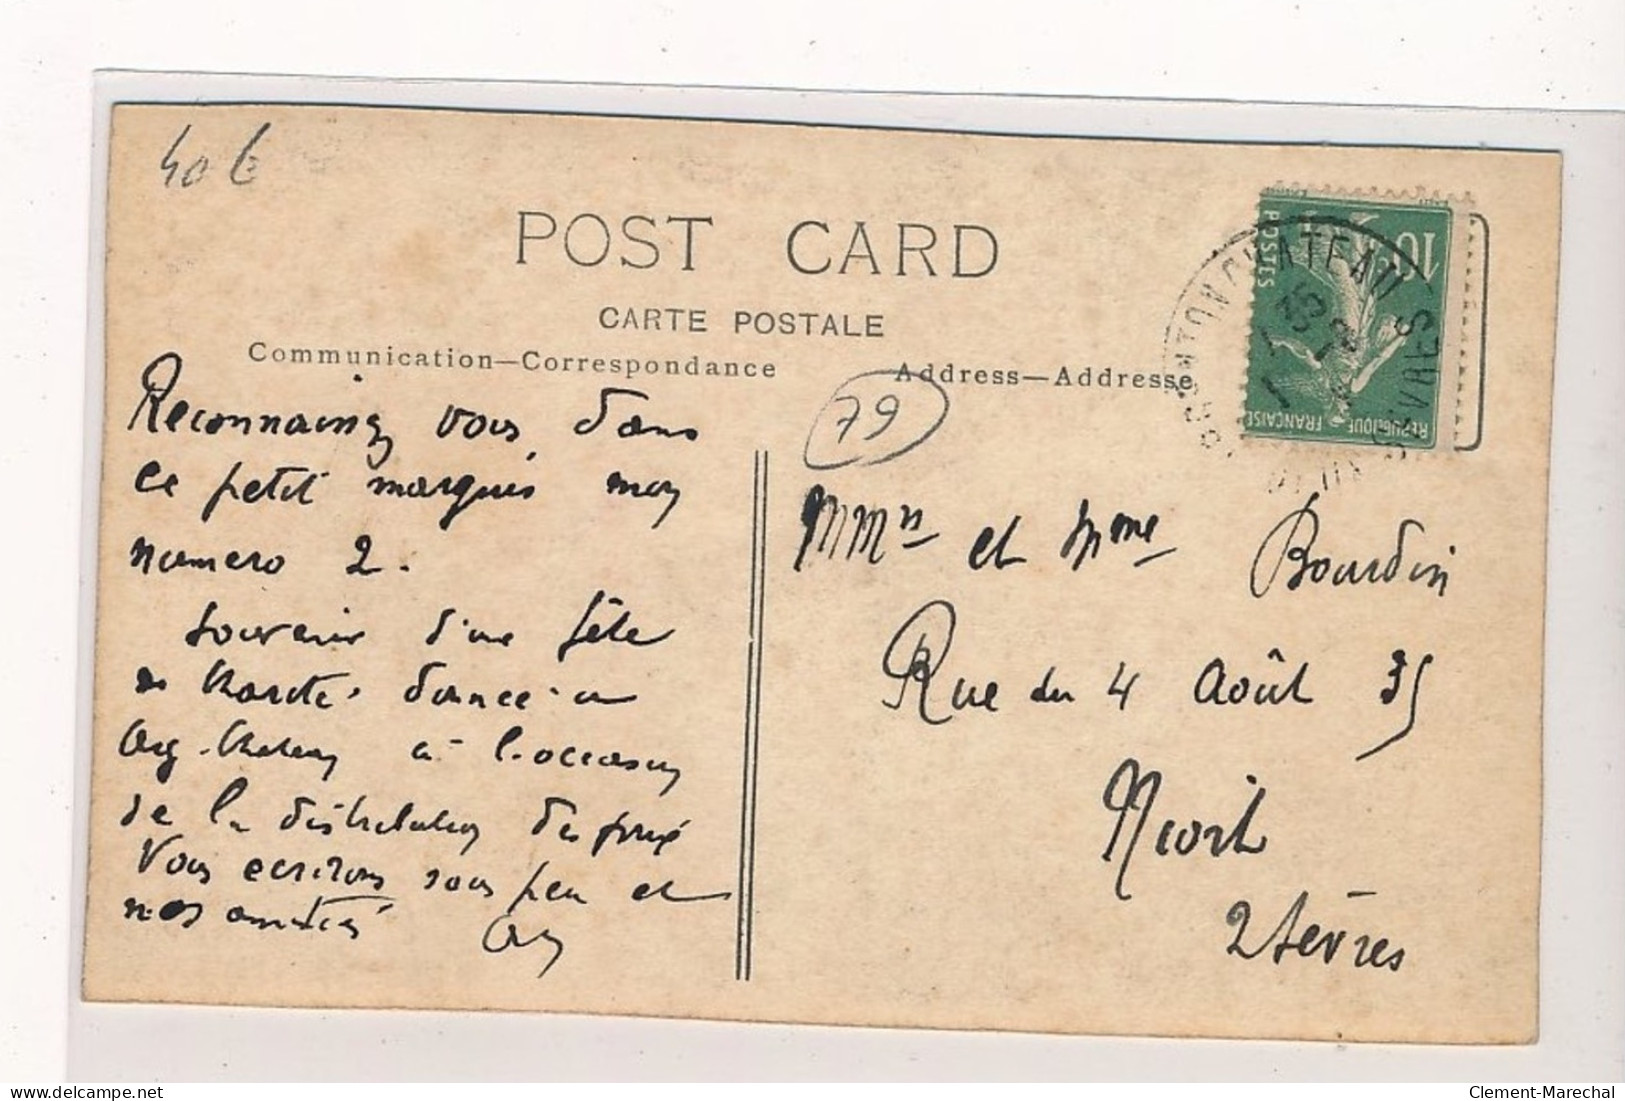 40 €
POST CARD
CARTE POSTALE
Communication—Correspondance
Address—Addresse
79
10
POSTES
REPUBLIQUE FRANÇAISE
ARGENTON CHATEAU
DEUX SEVRES
Reconnaissez vous dans
ce petit marquis mon
numero 2.
Souvenir d'une fête
de charité donnée a
Arg. Chateau à l'occasion
de la distribution des prix
Vous ecrirons sous peu et
nos amitiés
et Mme Bourdin
Rue du 4 Août 35
Niort
2 Sèvres
delcampe.net
Clement-Marechal